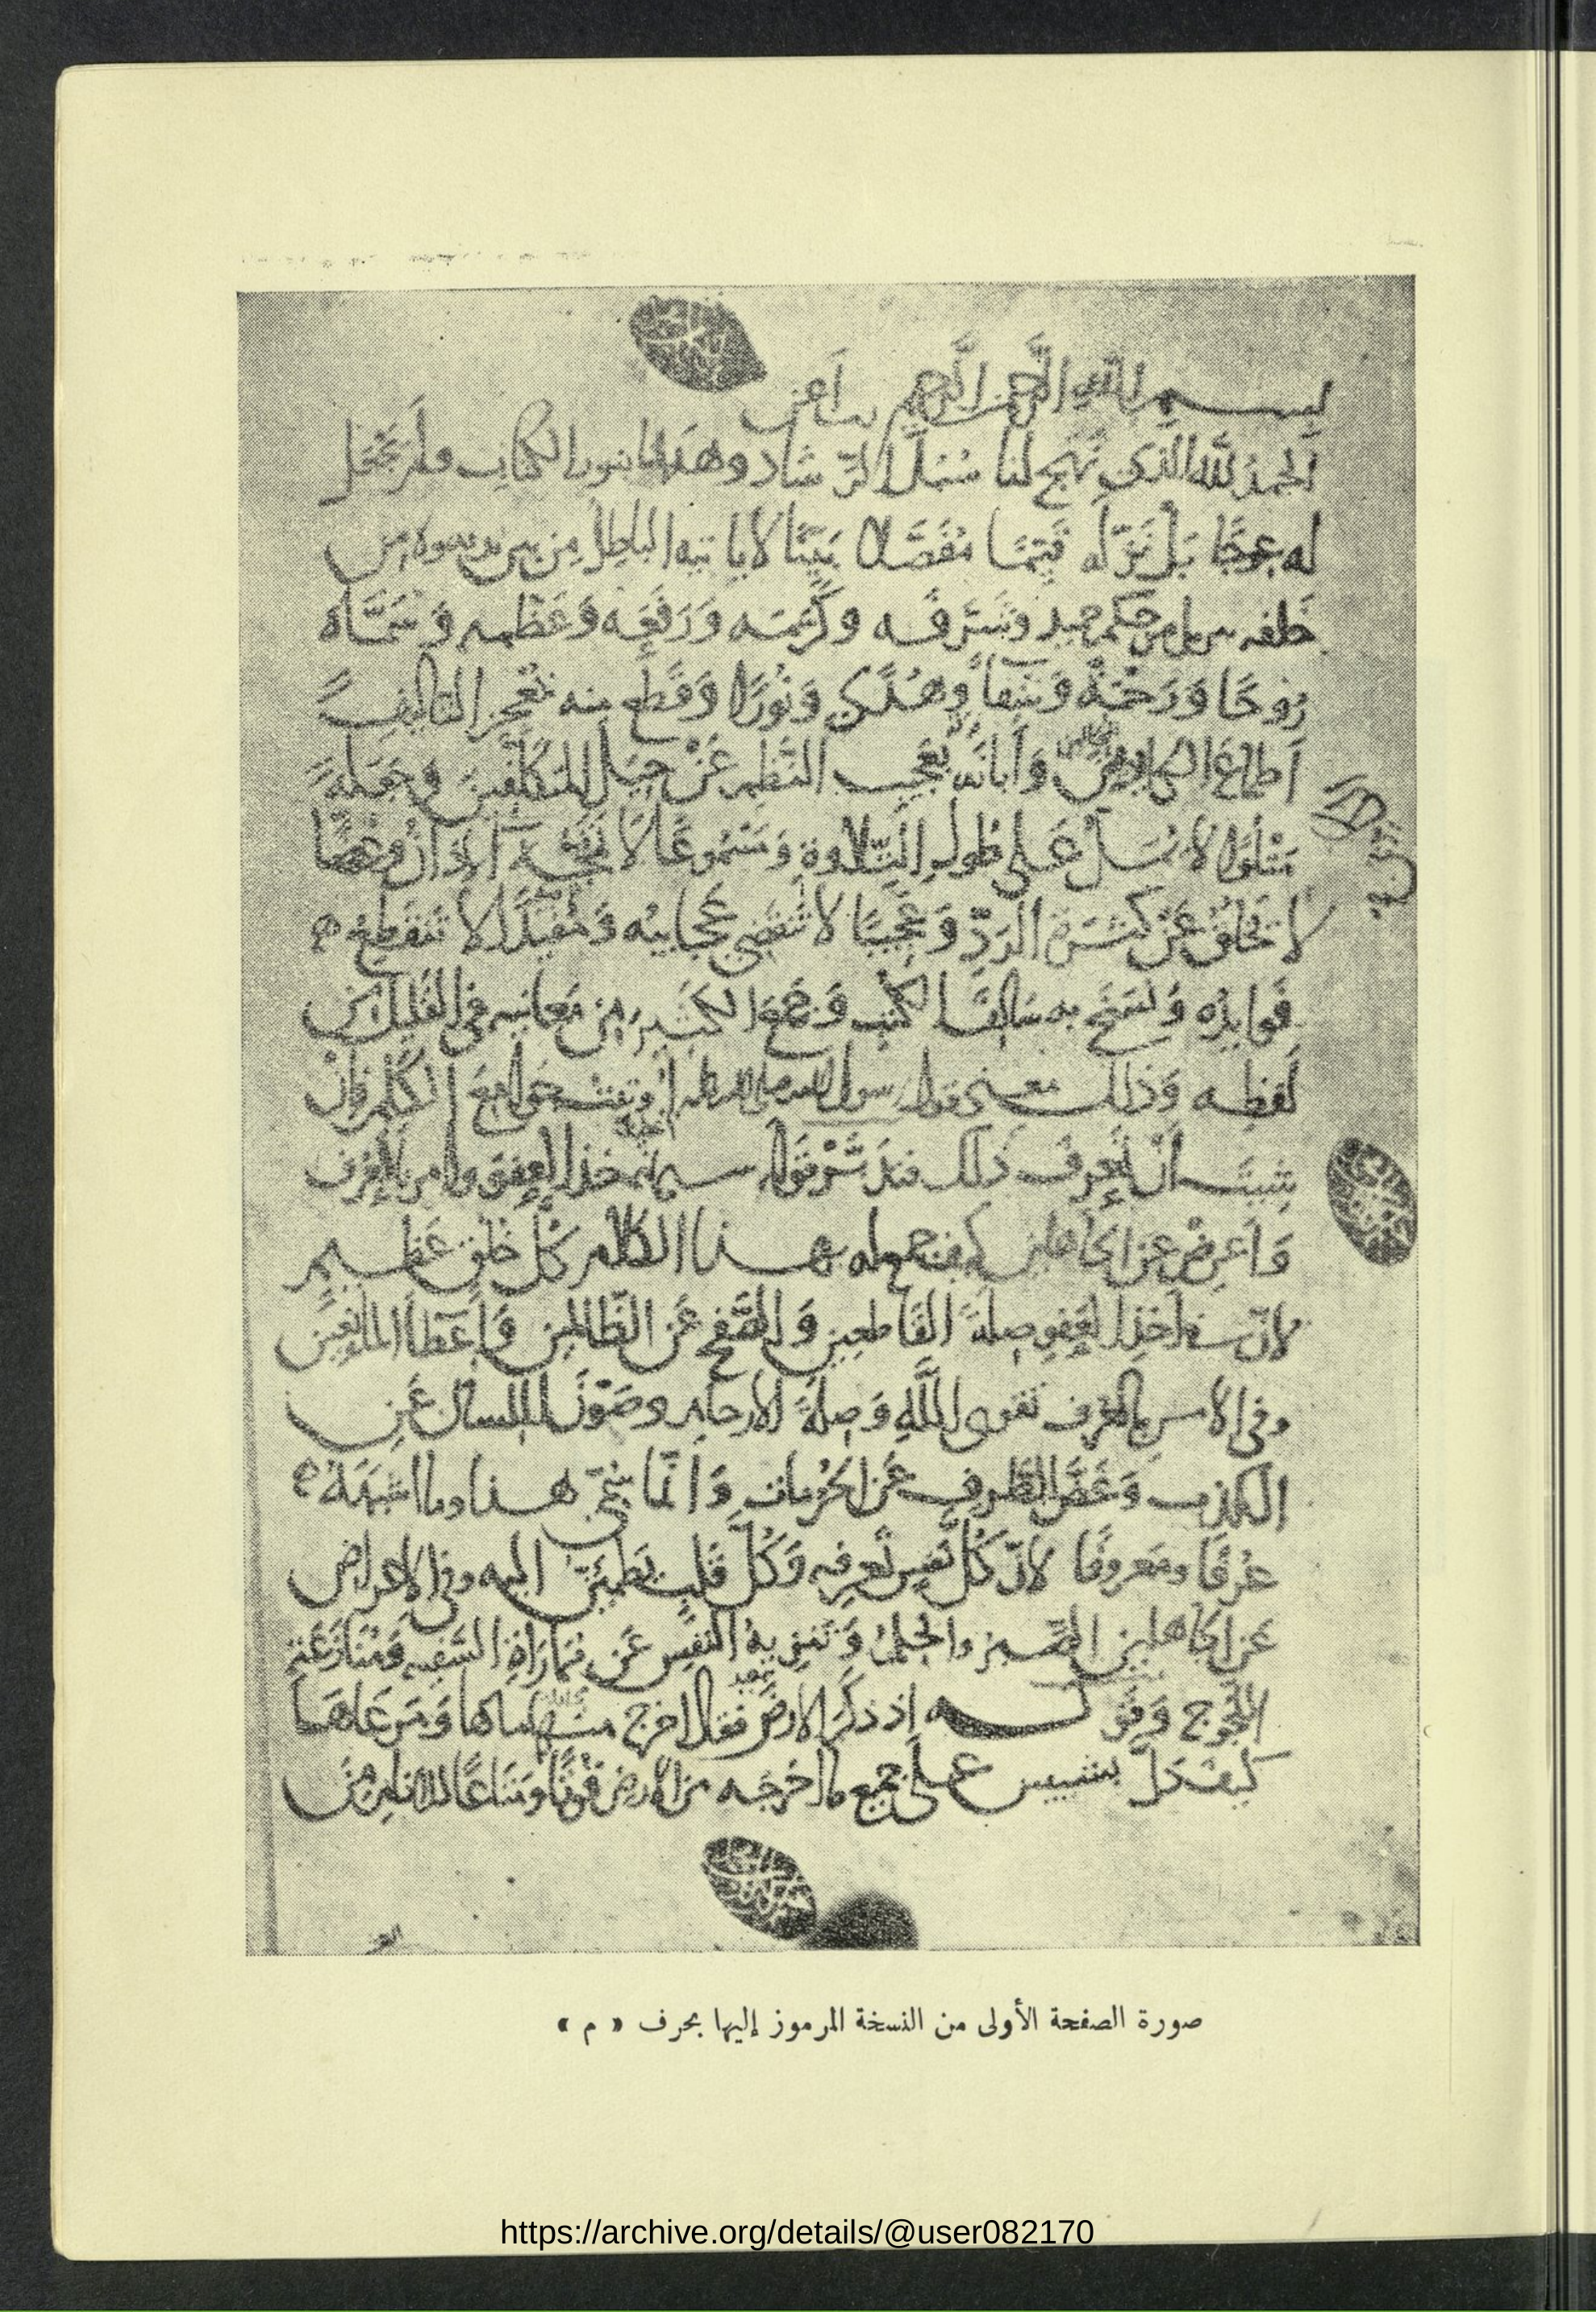 بسم الله الرحمن الرحيم رب أعن
الحمد لله الذي نهج لنا سُبُل الرشاد وهدانا بنور الكتاب ولم يجعل
له عوجا بل نزّله قيّما مفصّلا بيّنا لا يأتيه الباطل من بين يديه ولا من
خلفه تنزيل من حكيم حميد وشرّفه وكرّمه ورفعه وعظّمه وسمّاه
رُوحًا وَرَحْمَةً وَشِفَاً وهُدًى وَنُورًا وَقَطع منه بمعجز التأليف
أطماع الكايدين وَأبانَه بعجيب النظم عَنْ حِيَل المتكلّفين وجعله
متلوًّا لا يُمَلّ على طُول التِّلاوة ومسموعًا لا تمجّه الآذان وغضًّا
لا يخلق عَنْ كثرة الردّ وعجيبًا لا تنقضي عجايبُه ومُفيدًا لا تنقطع
فوايدُه ونسخ به سالف الكتب وجمع الكثير من معانيه في القليل من
لفظه وذلك معنى قول رسول الله صلى الله عليه أوتيت جوامع الكلم فإن
شئت أنْ تعرف ذلك فتدبّر قوله سبحانه خذ العفو وأمر بالعرف
وأعرض عن الجاهلين كيف جمع له بهذا الكلام كلّ خلق عظيم
لأنّ في أخذ العفو صلة القاطعين والصّفح عن الظالمين وإعطاء المانعين
وفي الأمر بالعرف تقوى الله وصلة الأرحام وصون اللسان عن
الكذب وغضّ الطرف عن الحُرُمات وإنّما سُمّي هذا وما أشبهه
عُرْفًا ومعروفًا لأنّ كلّ نفس تعرفه وكُلّ قلب يطمئنّ إليه وفي الاعراض
عن الجاهلين الصّبر والحلم وتنزيه النفس عن مماراة السّفيه ومنازعة
اللجوج وقوله إذ ذكر الأرض فقال أخرج منها ماءها ومرعاها
كيف دلّ بشيئين على جميع ما أخرجه من الأرض قوتًا ومتاعًا للأنام من
صورة الصفحة الأولى من النسخة المرموز إليها بحرف « م »
https://archive.org/details/@user082170